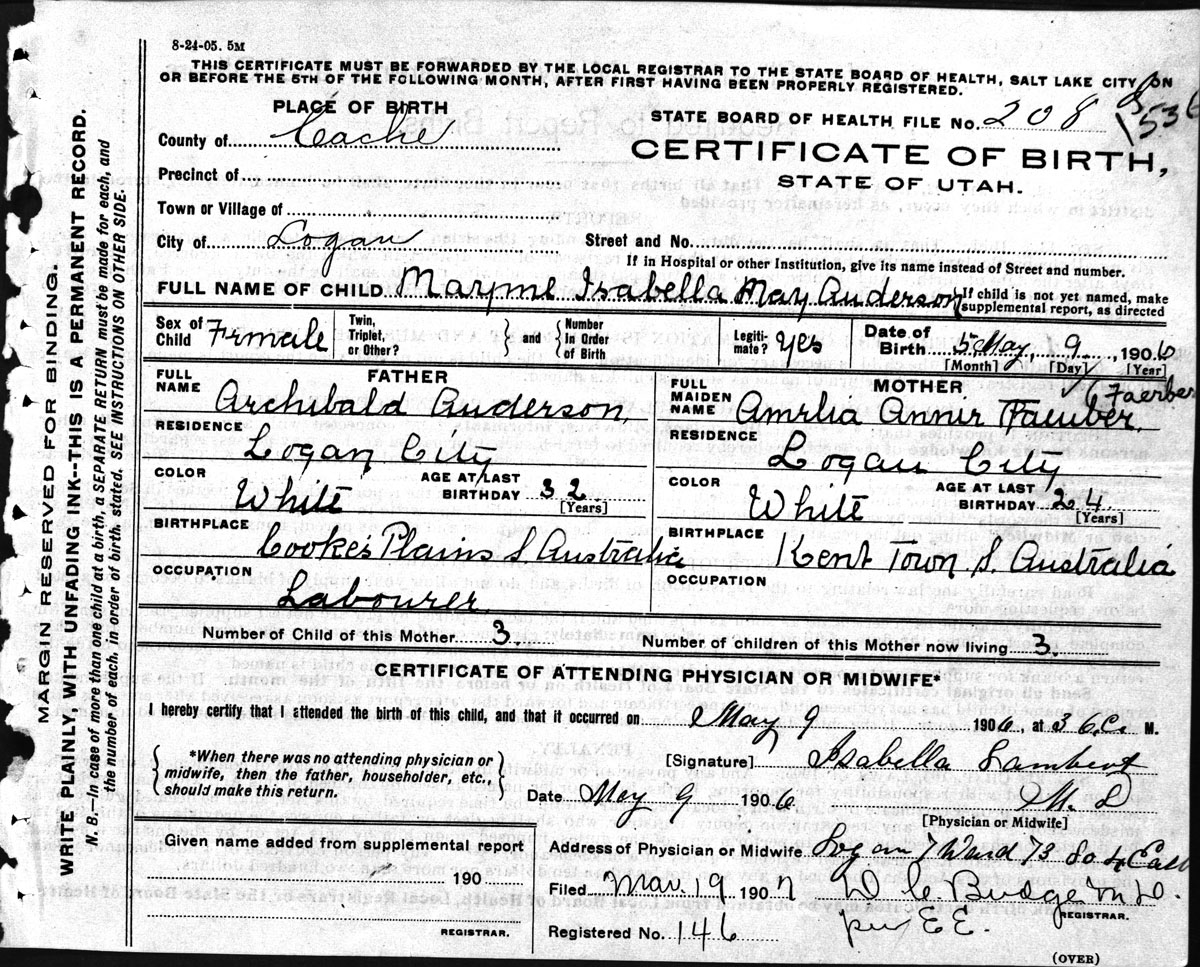 8-24-05. 5M
THIS CERTIFICATE MUST BE FORWARDED BY THE LOCAL REGISTRAR TO THE STATE BOARD OF HEALTH, SALT LAKE CITY, ON
OR BEFORE THE 5TH OF THE FOLLOWING MONTH, AFTER FIRST HAVING BEEN PROPERLY REGISTERED.
PLACE OF BIRTH
STATE BOARD OF HEALTH FILE No. 208
County of Cache
CERTIFICATE OF BIRTH,
STATE OF UTAH.
Precinct of
Town or Village of
City of Logan Street and No.
If in Hospital or other Institution, give its name instead of Street and number.
FULL NAME OF CHILD Mayme Isabella May Anderson { If child is not yet named, make supplemental report, as directed
Sex of Child Female Twin, Triplet, or Other? } and { Number In Order of Birth Legiti-mate? yes Date of Birth 5 May, 9, 1906
[Month] [Day] [Year]
FATHER
FULL NAME Archibald Anderson
RESIDENCE Logan City
COLOR White AGE AT LAST BIRTHDAY 32 [Years]
BIRTHPLACE Cooke's Plains S Australia
OCCUPATION Labourer
MOTHER Faerber
FULL MAIDEN NAME Amelia Annie
RESIDENCE Logan City
COLOR White AGE AT LAST BIRTHDAY 24 [Years]
BIRTHPLACE Kent Town S. Australia
OCCUPATION
Number of Child of this Mother 3. Number of children of this Mother now living 3.
CERTIFICATE OF ATTENDING PHYSICIAN OR MIDWIFE*
I hereby certify that I attended the birth of this child, and that it occurred on May 9 1906, at 3 M.
{ *When there was no attending physician or midwife, then the father, householder, etc., should make this return. }
[Signature] Isabella Lambert
Date May 9 1906 M. D
[Physician or Midwife]
Given name added from supplemental report
190
REGISTRAR.
Address of Physician or Midwife Logan 7 Ward 73 So 4 East
Filed Mar. 19 1907 D C Budge M.D.
REGISTRAR.
Registered No. 146 per E E.
(OVER)
MARGIN RESERVED FOR BINDING.
WRITE PLAINLY, WITH UNFADING INK--THIS IS A PERMANENT RECORD.
N. B.--In case of more than one child at a birth, a SEPARATE RETURN must be made for each, and
the number of each, in order of birth, stated. SEE INSTRUCTIONS ON OTHER SIDE.